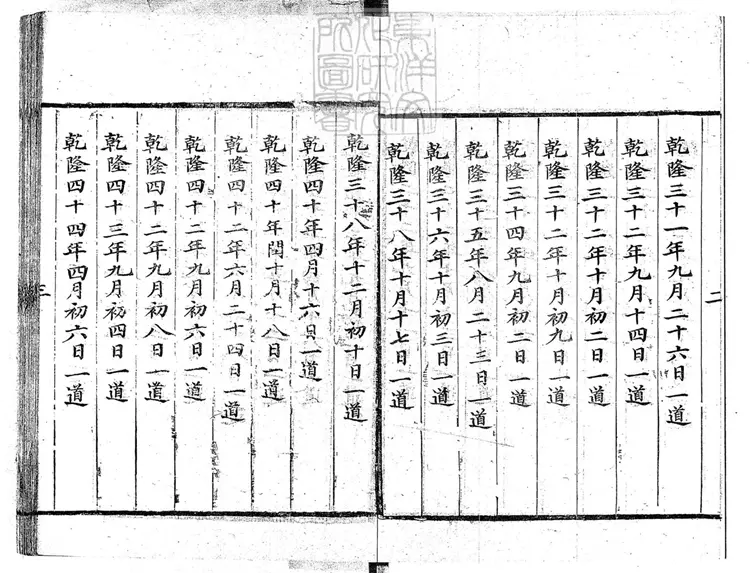 二
乾隆三十一年九月二十六日一道
乾隆三十二年九月十四日一道
乾隆三十二年十月初二日一道
乾隆三十二年十月初九日一道
乾隆三十四年九月初二日一道
乾隆三十五年八月二十三日一道
乾隆三十六年十月初三日一道
乾隆三十八年十月十七日一道
乾隆三十八年十二月初十日一道
乾隆四十年四月十六日一道
乾隆四十年閏十月十八日一道
乾隆四十二年六月二十四日一道
乾隆四十二年九月初六日一道
乾隆四十二年九月初八日一道
乾隆四十三年九月初四日一道
乾隆四十四年四月初六日一道
三